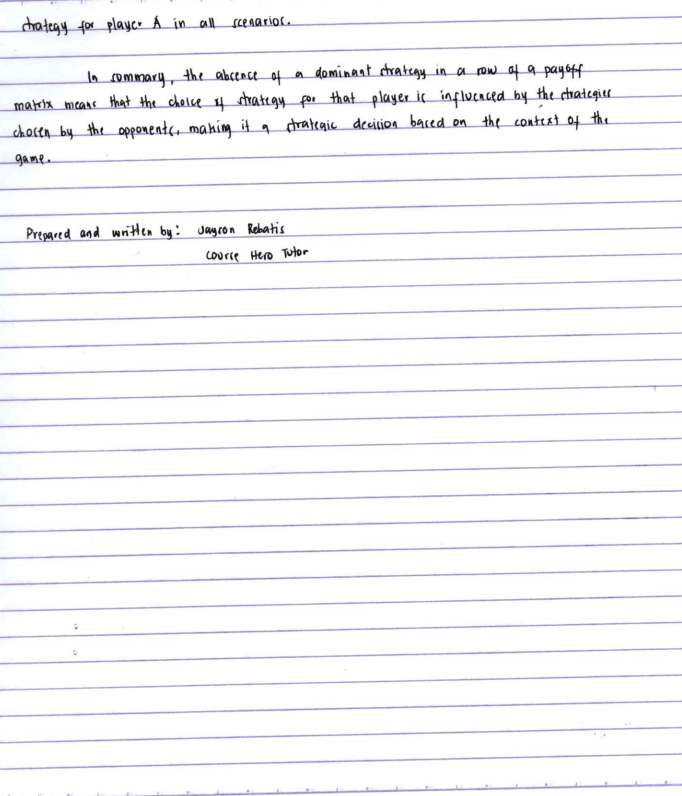 strategy for player A in all scenarios.
In summary, the absence of a dominant strategy in a row of a payoff
matrix means that the choice of strategy for that player is influenced by the strategies
chosen by the opponents, making it a strategic decision based on the context of the
game.
Prepared and written by: Jayson Rebatis
Course Hero Tutor